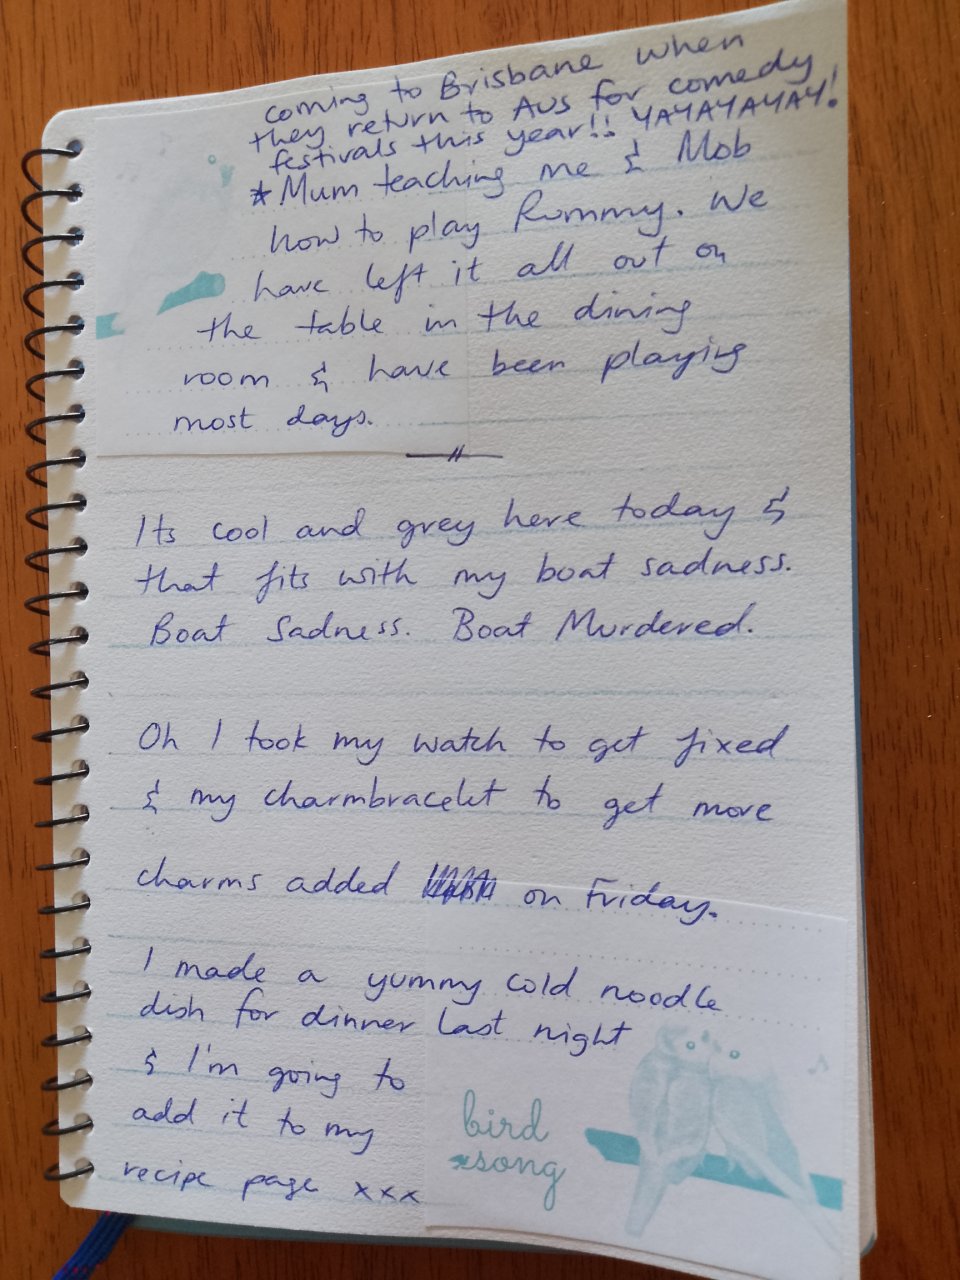 coming to Brisbane when
they return to Aus for comedy
festivals this year!! YAYAYAYAY!
* Mum teaching me & Mob
how to play Rummy. We
have left it all out on
the table in the dining
room & have been playing
most days.
Its cool and grey here today &
that fits with my boat sadness.
Boat Sadness. Boat Murdered.
Oh I took my watch to get fixed
& my charmbracelet to get more
charms added on Friday.
I made a yummy cold noodle
dish for dinner last night
& I'm going to
add it to my
recipe page xxx
bird
song